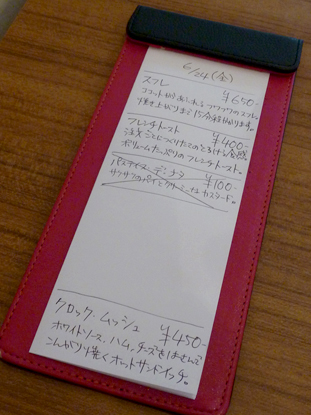 6/24(金)
スフレ ¥650-
ココットからあふれるフワフワのスフレ。
焼き上がりまで15分程かかります。
フレンチトースト ¥400-
注文ごとにつくりたての
ボリュームたっぷりのフレンチトースト。
パステイス・デ・ナタ ¥100-
サクサクのパイとクリーミーなカスタード。
クロック・ムッシュ ¥450-
ホワイトソース、ハム、チーズをはさんで
こんがり焼くホットサンドイッチ。